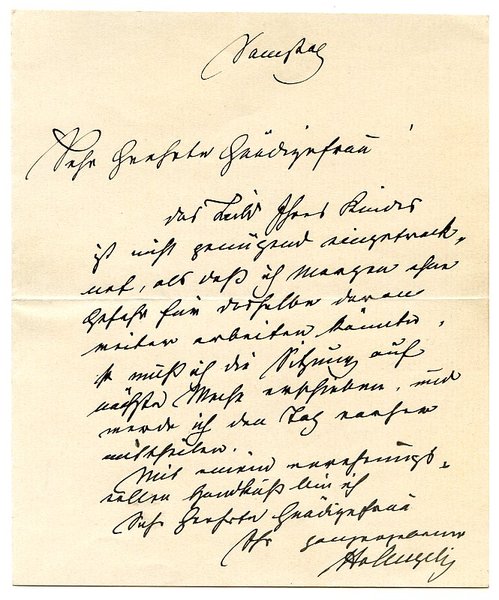 Samstag
Sehr Geehrte Gnädigefrau!
das Bild Ihres Kindes
ist nicht genügend eingetrock-
net, als daß ich morgen ohne
Gefahr für dasselbe daran
weiter arbeiten könnte,
so muß ich die Sitzung auf
nächste Woche verschieben, und
werde ich den Tag vorher
mittheilen.
Mit einem verehrungs-
vollen Handkuß bin ich
Sehr Geehrte Gnädigefrau
Ihr ganz ergebener